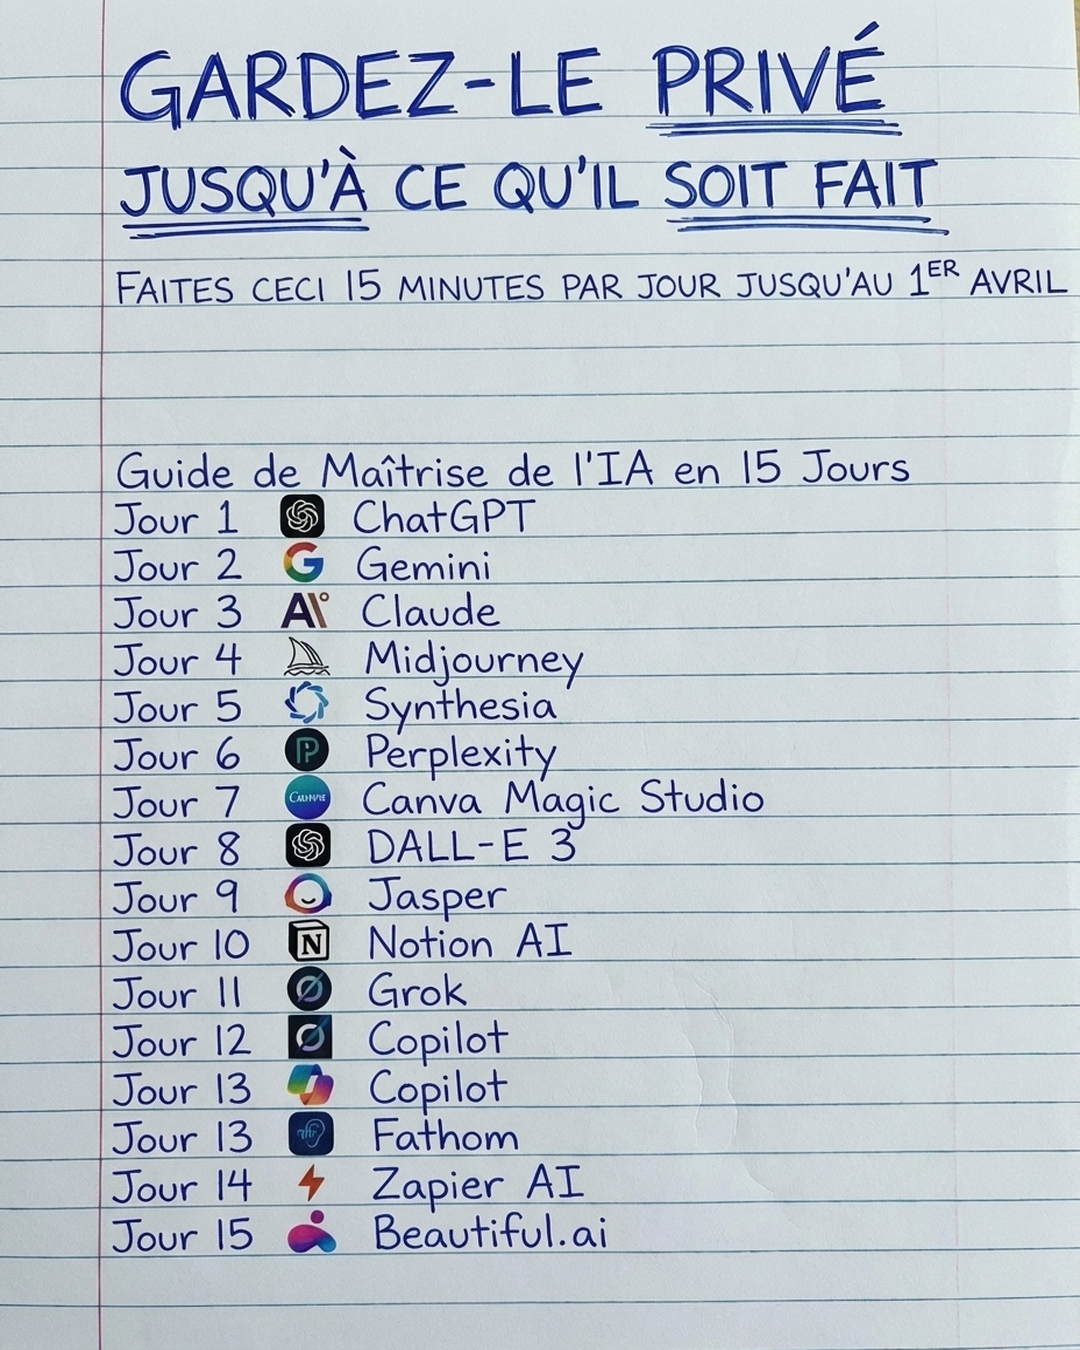 GARDEZ-LE PRIVÉ
JUSQU'À CE QU'IL SOIT FAIT
FAITES CECI 15 MINUTES PAR JOUR JUSQU'AU 1ER AVRIL
Guide de Maîtrise de l'IA en 15 Jours
Jour 1 ChatGPT
Jour 2 Gemini
Jour 3 Claude
Jour 4 Midjourney
Jour 5 Synthesia
Jour 6 Perplexity
Jour 7 Canva Magic Studio
Jour 8 DALL-E 3
Jour 9 Jasper
Jour 10 Notion AI
Jour 11 Grok
Jour 12 Copilot
Jour 13 Copilot
Jour 13 Fathom
Jour 14 Zapier AI
Jour 15 Beautiful.ai